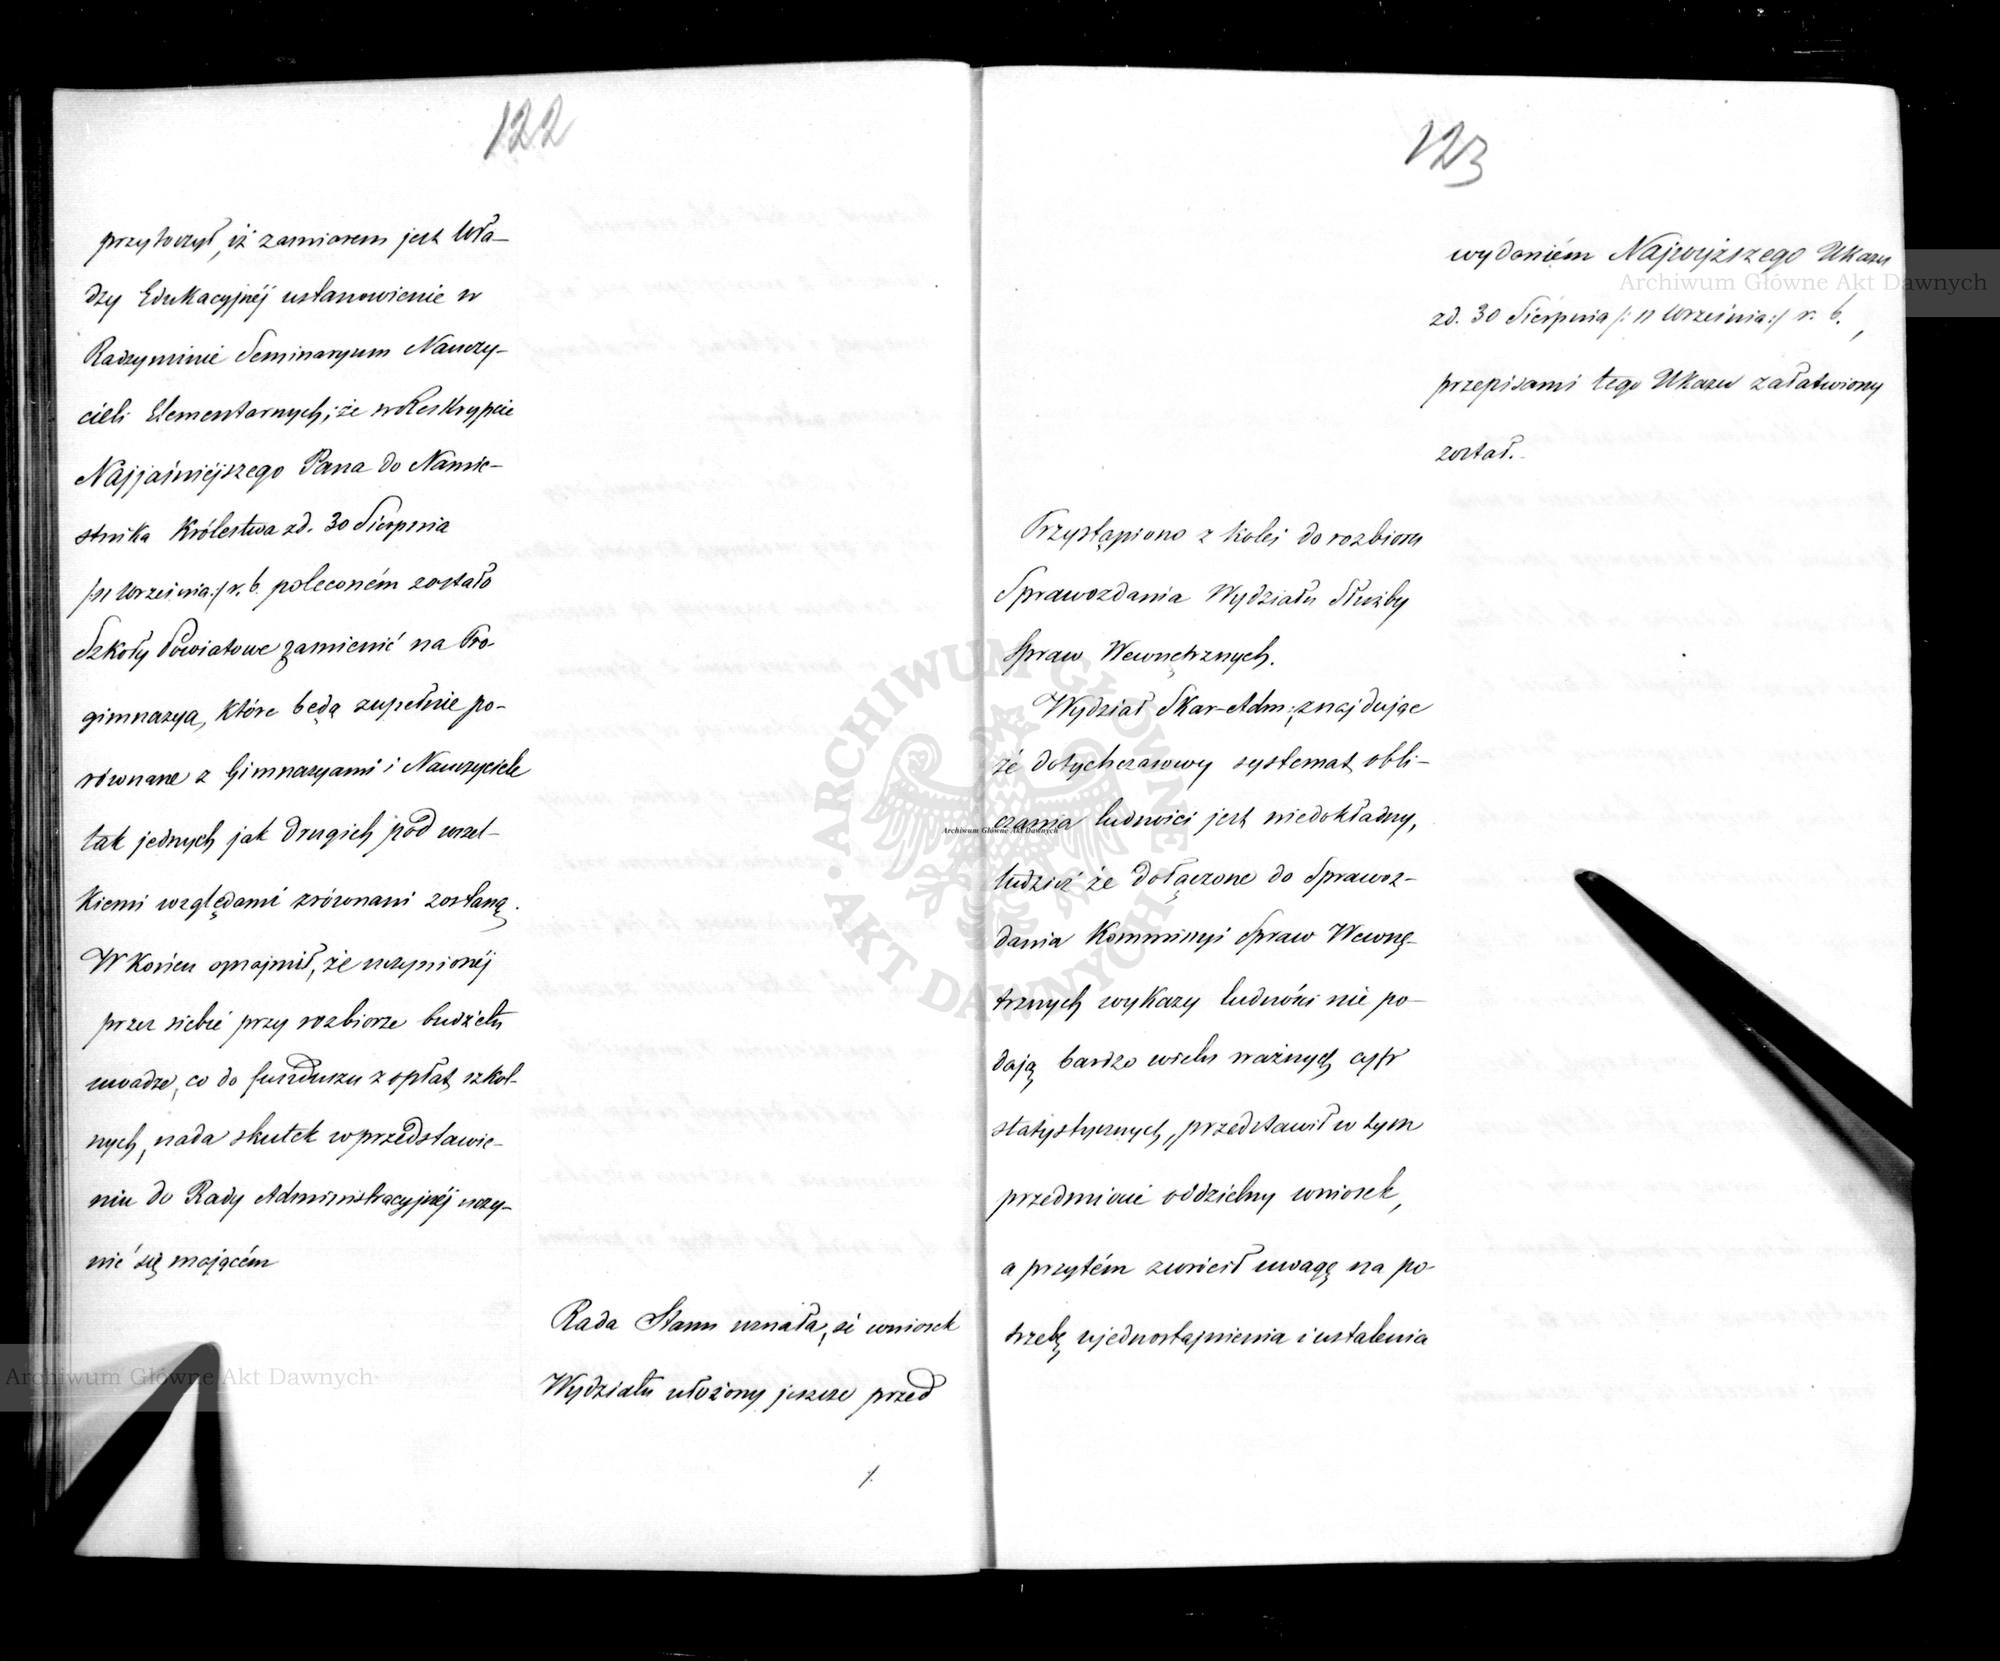 122
przytoczył, iż zamiarem jest Wła-
dzy Edukacyjnéj ustanowienie w
Radzyminie Seminaryum Nauczy-
cieli Elementarnych; że w Reskrypcie
Najjaśniéjszego Pana do Namie-
stnika Królestwa zd. 30 Sierpnia
/:11 Września:/ r. b. poleconém zostało
Szkoły Powiatowe zamienić na Pro-
gimnazya, które będą zupełnie po-
równane z Gimnazyami i Nauczyciele
tak jednych jak drugich pod wszel-
kiemi względami zrównani zostaną.
W końcu oznajmił, że uczynionéj
przez siebie przy rozbiorze budżetu
uwadze, co do funduszu z opłat szkol-
nych, nada skutek w przedstawie-
niu do Rady Administracyjnéj uczy-
nić się mającém
Rada Stanu uznała, że wniosek
Wydziału ułożony jeszcze przed
/.
123
wydaniém Najwyższego Ukazu
zd. 30 Sierpnia /:11 Września:/ r. b.,
przepisami tego Ukazu załatwiony
został.
Przystąpiono z kolei do rozbioru
Sprawozdania Wydziału Służby
Spraw Wewnętrznych.
Wydział Skar-Adm: znajdując
że dotychczasowy systemat obli-
czania ludności jest niedokładny,
tudzież że dołączone do Sprawoz-
dania Kommissyi Spraw Wewnę-
trznych wykazy ludności nie po-
dają bardzo wielu ważnych cyfr
statystycznych, przedstawił w tym
przedmiocie oddzielny wniosek,
a przytém zwrócił uwagę na po-
trzebę ujednostajnienia i ustalenia
Archiwum Główne Akt Dawnych
Archiwum Główne Akt Dawnych
Archiwum Główne Akt Dawnych
ARCHIWUM GŁÓWNE • AKT DAWNYCH •